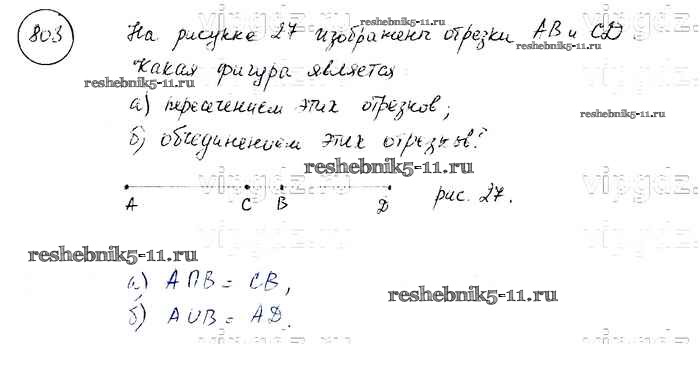 803 На рисунке 27 изображены отрезки AB и CD.
Какая фигура является
а) пересечением этих отрезков;
б) объединением этих отрезков?
A C B D рис. 27.
а) A∩B = CB,
б) A∪B = AD.
reshebnik5-11.ru
reshebnik5-11.ru
reshebnik5-11.ru
reshebnik5-11.ru
reshebnik5-11.ru
reshebnik5-11.ru
reshebnik5-11.ru
vipgdz.
vipgdz.
vipgdz.
vipgdz.